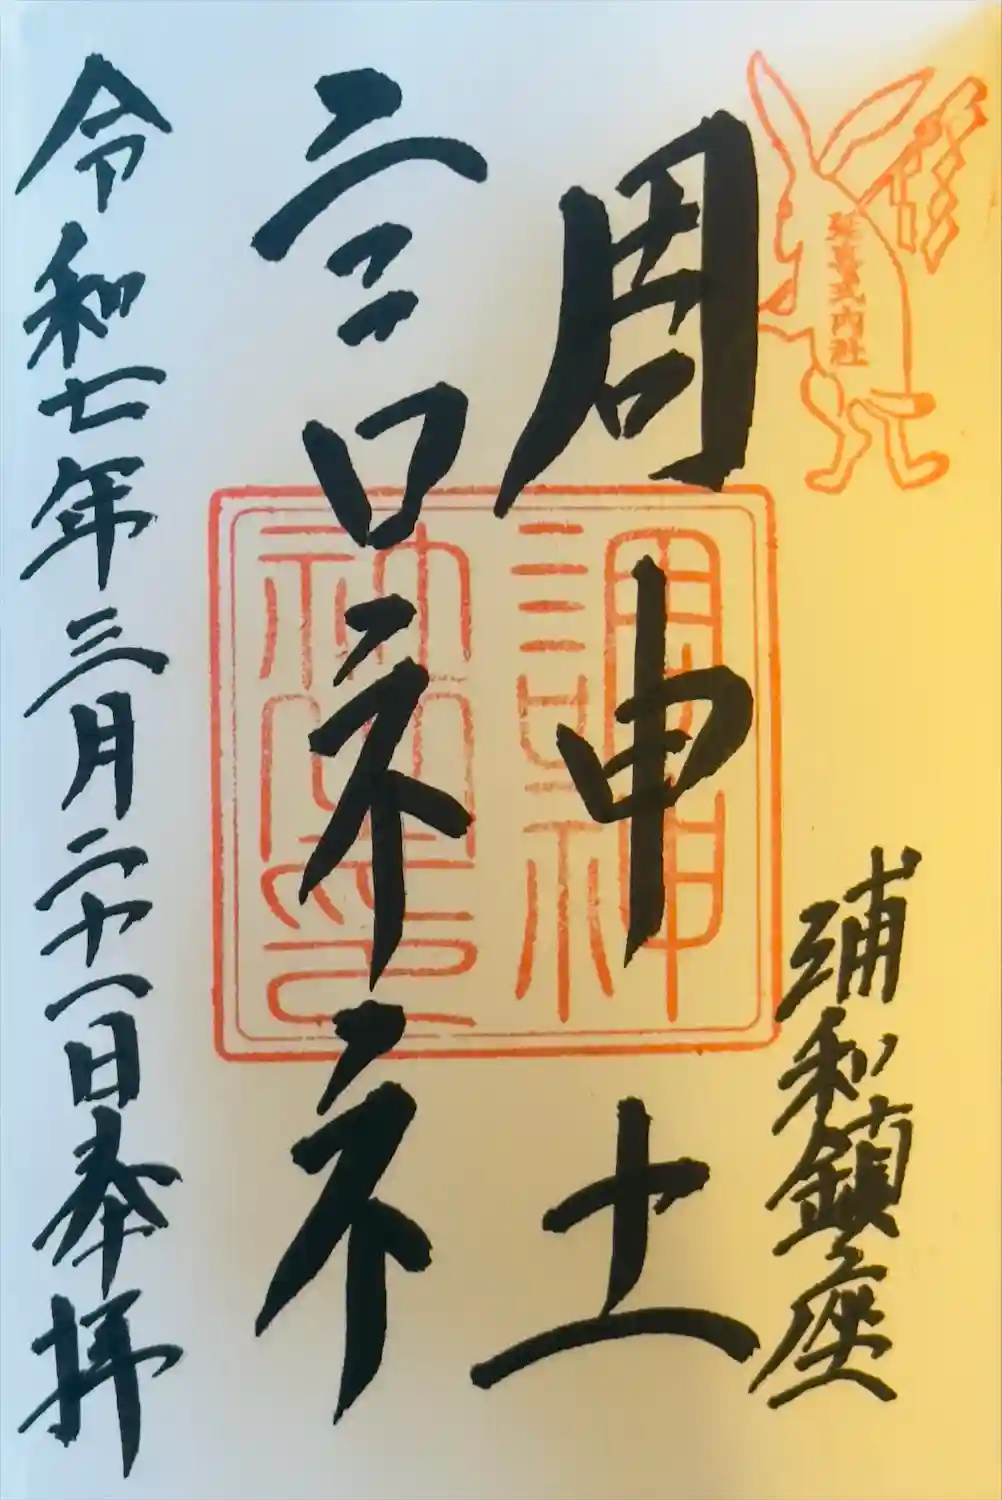 延喜式内社
浦和鎮座
調神社
調神
令和七年三月二十一日奉拝